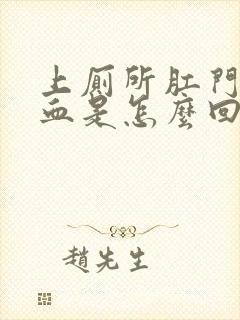 上厕所肛門
血是怎麼回
趙先生